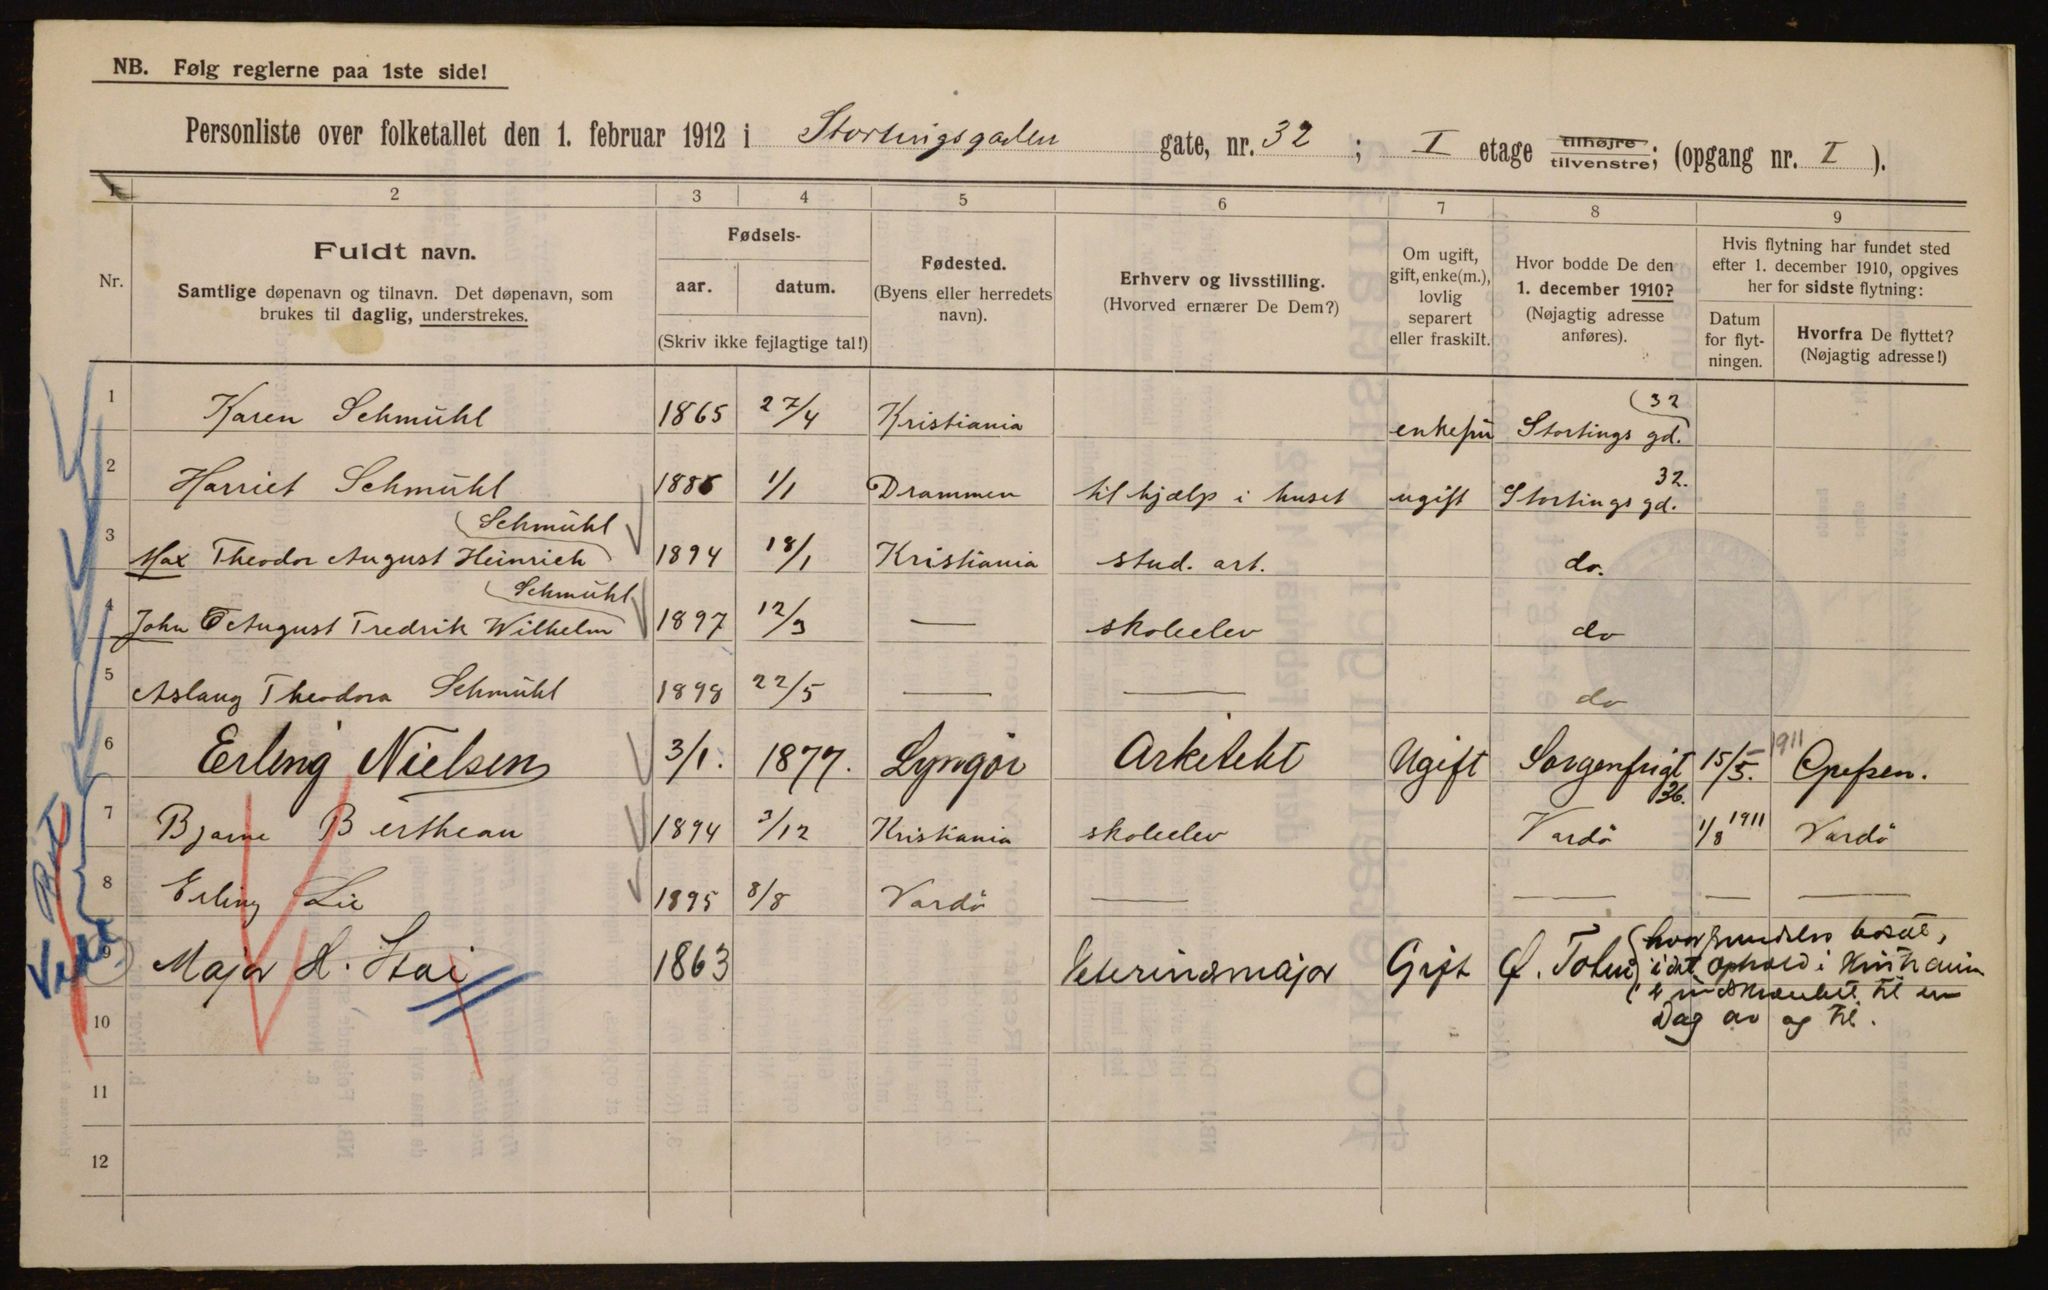 NB. Følg reglerne paa 1ste side!
Personliste over folketallet den 1. februar 1912 i Stortingsgaden gate, nr. 32 ; I etage tilhøjre tilvenstre; (opgang nr. I ).
1 2 3 4 5 6 7 8 9
Nr.
Fuldt navn.
Samtlige døpenavn og tilnavn. Det døpenavn, som
brukes til daglig, understrekes.
Fødsels-
aar. datum.
(Skriv ikke fejlagtige tal!)
Fødested.
(Byens eller herredets
navn).
Erhverv og livsstilling.
(Hvorved ernærer De Dem?)
Om ugift,
gift, enke(m.),
lovlig
separert
eller fraskilt.
Hvor bodde De den
1. december 1910?
(Nøjagtig adresse
anføres).
Hvis flytning har fundet sted
efter 1. december 1910, opgives
her for sidste flytning:
Datum
for flyt-
ningen.
Hvorfra De flyttet?
(Nøjagtig adresse!)
1 Karen Schmühl 1865 27/4 Kristiania Stortings gd. 32
2 Harriet Schmühl 1/1 Drammen til hjælp i huset ugift Stortings gd. 32.
3 Max Theodor August Heinrich Schmühl 1894 18/1 Kristiania stud. art. do.
4 John August Fredrik Wilhelm Schmühl 1897 12/3 — skoleelev do
5 Aslaug Theodora Schmühl 1898 22/5 — — do
6 Erling Nielsen 3/1. 1877. Lyngør Arkitekt Ugift Sorgenfrigt 36. 15/5. 1911
7 Bjarne Bertheau 1894 3/12 Kristiania skoleelev Vardö 1/8 1911 Vardö
8 Erling Lie 1895 8/8 Vardö — — — —
9 Major H. Stai 1863 Veterinærmajor Gift Ø. Toten hvor fremdeles bosat,
ophold i Kristiania
er indskrænket til en
Dag av og til.
10
11
12